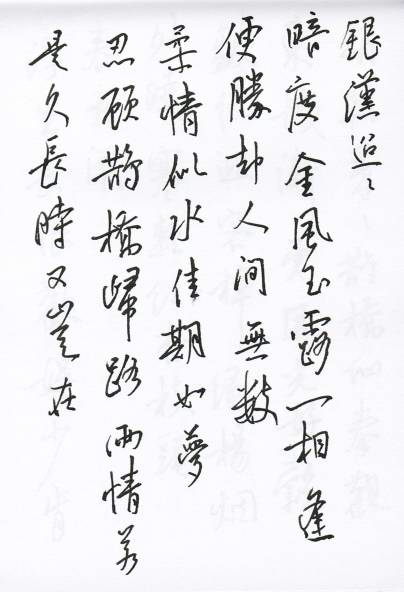 銀漢迢〻
暗度金風玉露一相逢
便勝却人間無數
柔情似水佳期如夢
忍顧鵲橋歸路兩情若
是久長時又豈在